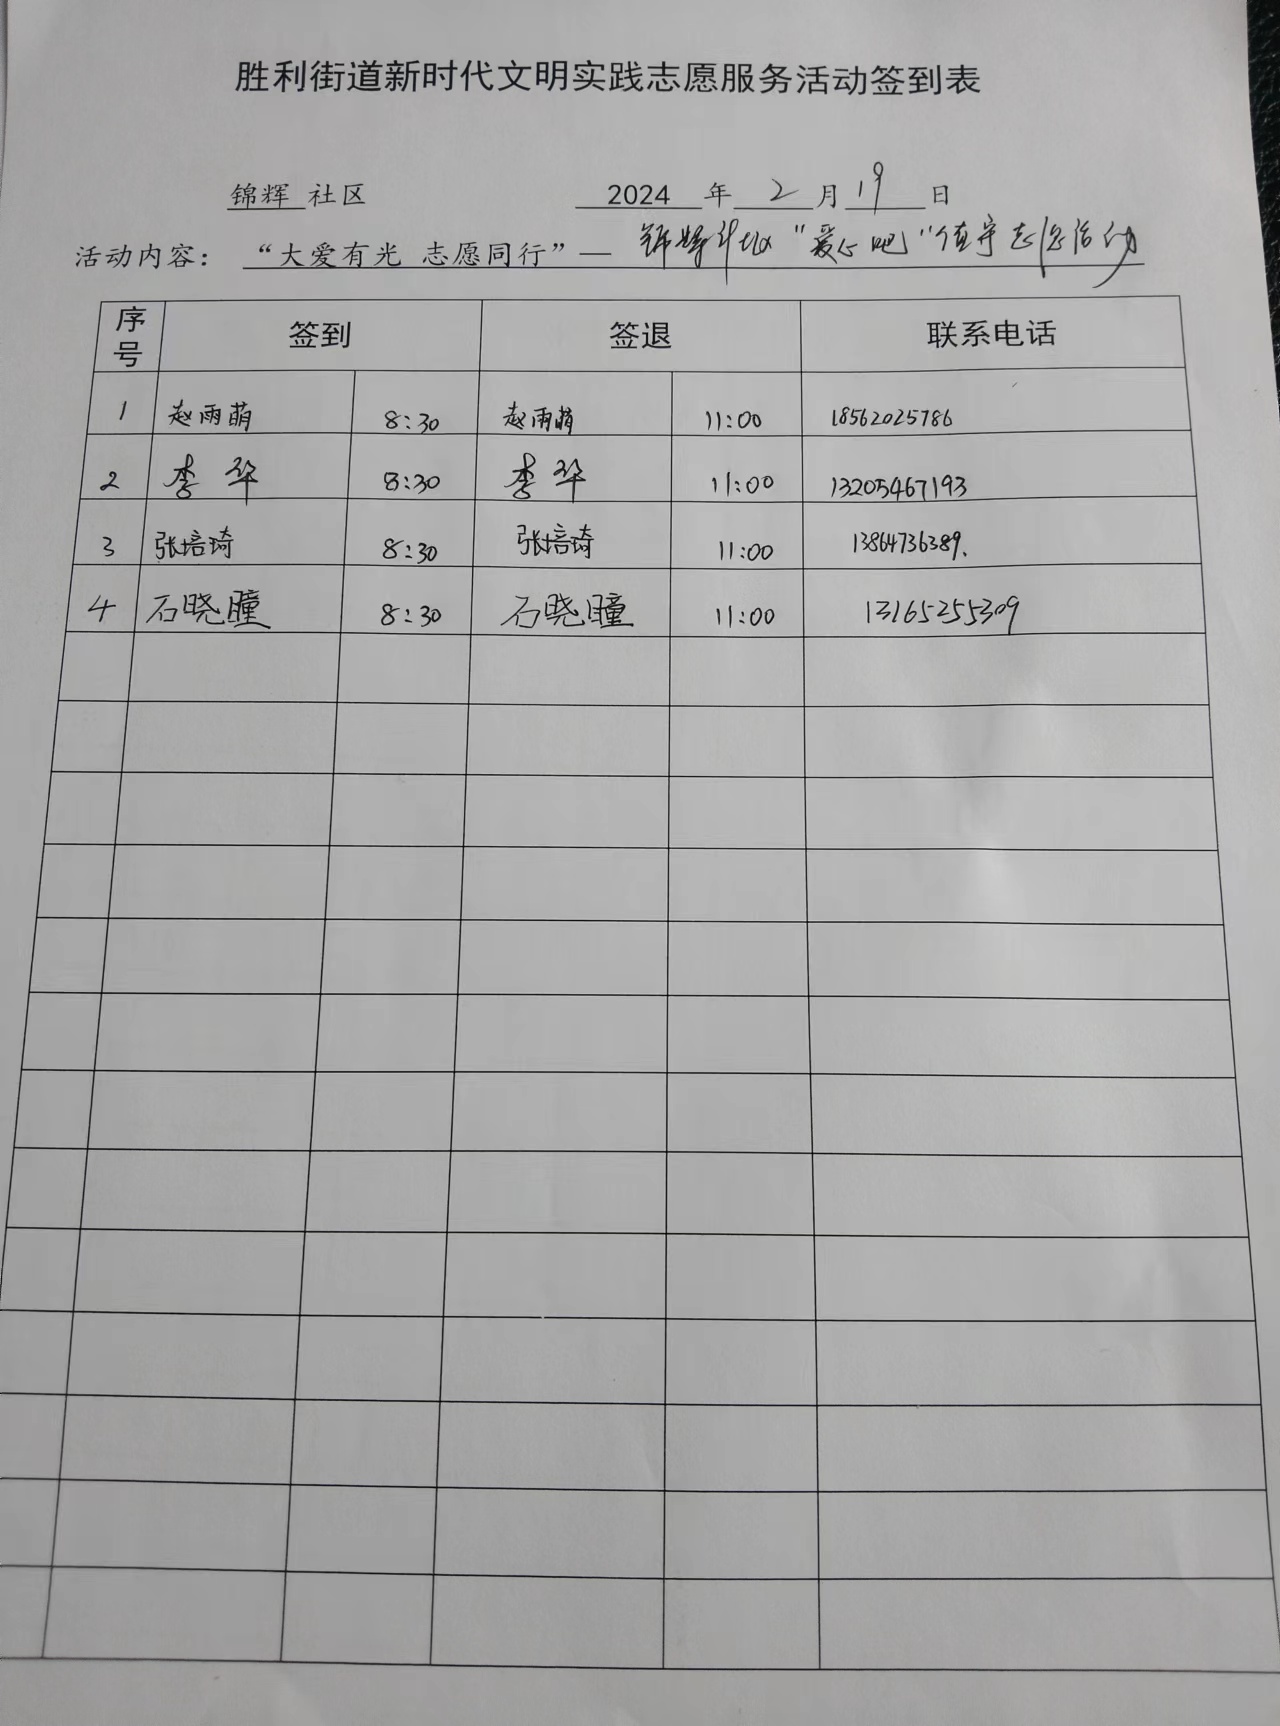 胜利街道新时代文明实践志愿服务活动签到表
锦辉 社区 2024 年 2 月 19 日
活动内容： “大爱有光 志愿同行”— 锦辉社区“爱心吧”值守志愿活动
序号 签到 签退 联系电话
1 赵雨萌 8:30 赵雨萌 11:00 18562025786
2 李华 8:30 李华 11:00 13205467193
3 张培琦 8:30 张培琦 11:00 13864736389.
4 石晓瞳 8:30 石晓瞳 11:00 13165255309